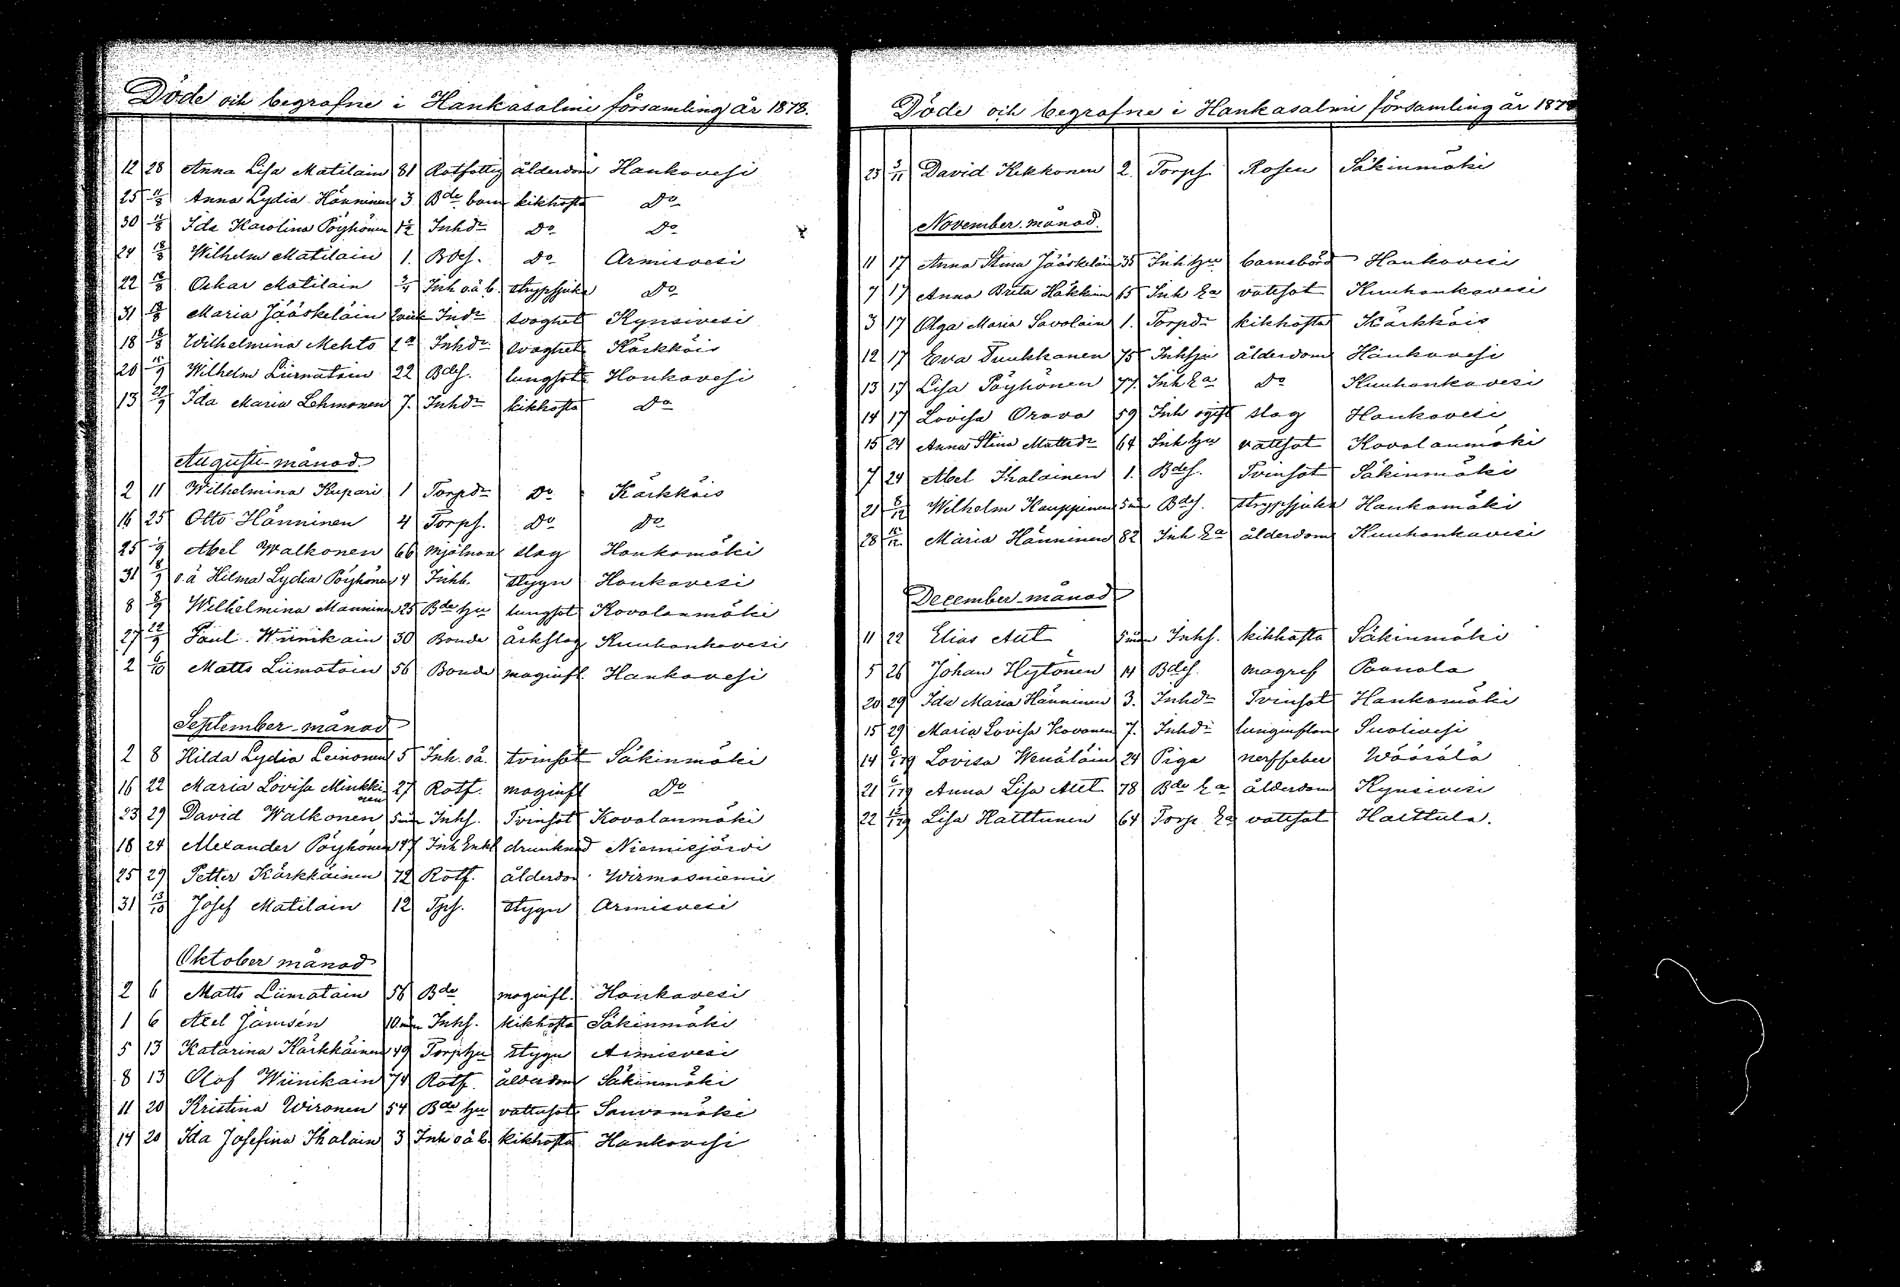 Döde och begrafne i Hankasalmi församling år 1878.
12 28 Anna Lisa Matilain 81 Rotfattig ålderdom Hankavesi
25 11/8 Anna Lydia Hänninen 3 Bde barn kikhosta Do
30 11/8 Ida Karolina Pöyhönen 1 1/2 Inhdr Do Do
24 18/8 Wilhelm Matilain 1. Bdes. Do Armisvesi
22 18/8 Oskar Matilain 3/4 Inh oä b. strypsjuka Do
31 18/8 Maria Jääskeläin Indr svaghet Kynsivesi
18 18/8 Wilhelmina Mehto Inhdr svaghet Kärkkäis
20 15/9 Wilhelm Liimatain 22 Bdes. lungsot Hankavesi
13 22/9 Ida Maria Lehmonen 7. Inhdr kikhosta Do
Augusti månad
2 11 Wilhelmina Kupari 1 Torpdr Do Kärkkäis
16 25 Otto Hänninen 4 Torps. Do Do
25 1/9 Abel Walkonen 66 Mjölnare slag Hankamäki
31 8/9 o.ä Hilma Lydia Pöyhönen 4 Inhb. stygn Hankavesi
8 8/9 Wilhelmina Manninen 25 Bde hju lungsot Kovalanmäki
27 22/9 Paul Wiinikain 30 Bonde åskslag Kuuhankavesi
2 6/10 Matts Liimatain 56 Bonde maginfl. Hankavesi
September månad
2 8 Hilda Lydia Leinonen 5 Inh. oä. tvinsot Säkinmäki
16 22 Maria Lovisa Minkkinen 27 Rotf. maginfl Do
23 29 David Walkonen 5 mån Inhs. Tvinsot Kovalanmäki
18 24 Alexander Pöyhönen 47 Inh Enkl drunknad Niemisjärvi
25 29 Petter Kärkkäinen 72 Rotf. ålderdom Wirmasniemi
31 13/10 Josef Matilain 12 Tps. stygn Armisvesi
Oktober månad
2 6 Matts Liimatain 56 Bde maginfl. Hankavesi
1 6 Axel Jämsén 10 mån Inhs. kikhosta Säkinmäki
5 13 Katarina Kärkkäinen 49 Torp hju stygn Armisvesi
8 13 Olof Wiinikain 74 Rotf. ålderdom Säkinmäki
11 20 Kristina Wironen 54 Bde hju vattusot Sauvamäki
14 20 Ida Josefina Ihalain 3 Inh oä b. kikhosta Hankavesi
Döde och begrafne i Hankasalmi församling år 1878
23 3/11 David Kekkonen 2. Torps. Rosen Säkinmäki
November månad.
11 17 Anna Stina Jääskeläin 35 Inh hju barnsbörd Hankavesi
7 17 Anna Brita Häkkinen 65 Inh Ea vattsot Kuuhankavesi
3 17 Olga Maria Savolain 1. Torpdr kikhosta Kärkkäis
12 17 Eva Tuukkanen 75 Inhhju ålderdom Hankavesi
13 17 Lisa Pöyhönen 77. Inh Ea Do Kuuhankavesi
14 17 Lovisa Orava 59 Inh ogift slag Hankavesi
15 24 Anna Stina Mattsdr 64 Inh hju vattsot Kovalanmäki
7 24 Abel Ihalainen 1. Bdes. Tvinsot Säkinmäki
21 8/12 Wilhelm Kauppinen 5 mån Bdes. strypsjuka Hankamäki
28 15/12 Maria Hänninen 82 Inh Ea ålderdom Kuuhankavesi
December månad
11 22 Elias Aut 5 mån Inhs. kikhosta Säkinmäki
5 26 Johan Hytönen 14 Bdes. magref Paanala
20 29 Ida Maria Hänninen 3. Inhdr Tvinsot Hankamäki
15 29 Maria Lovisa Kovanen 7. Inhdr lunginflam Suolivesi
14 6/1 79 Lovisa Wenäläin 24 Piga nerffeber Wäärälä
21 6/1 79 Anna Lisa Alt 78 Bde Ea ålderdom Kynsivesi
22 12/1 79 Lisa Halttunen 64 Torp Ea vattsot Halttula.